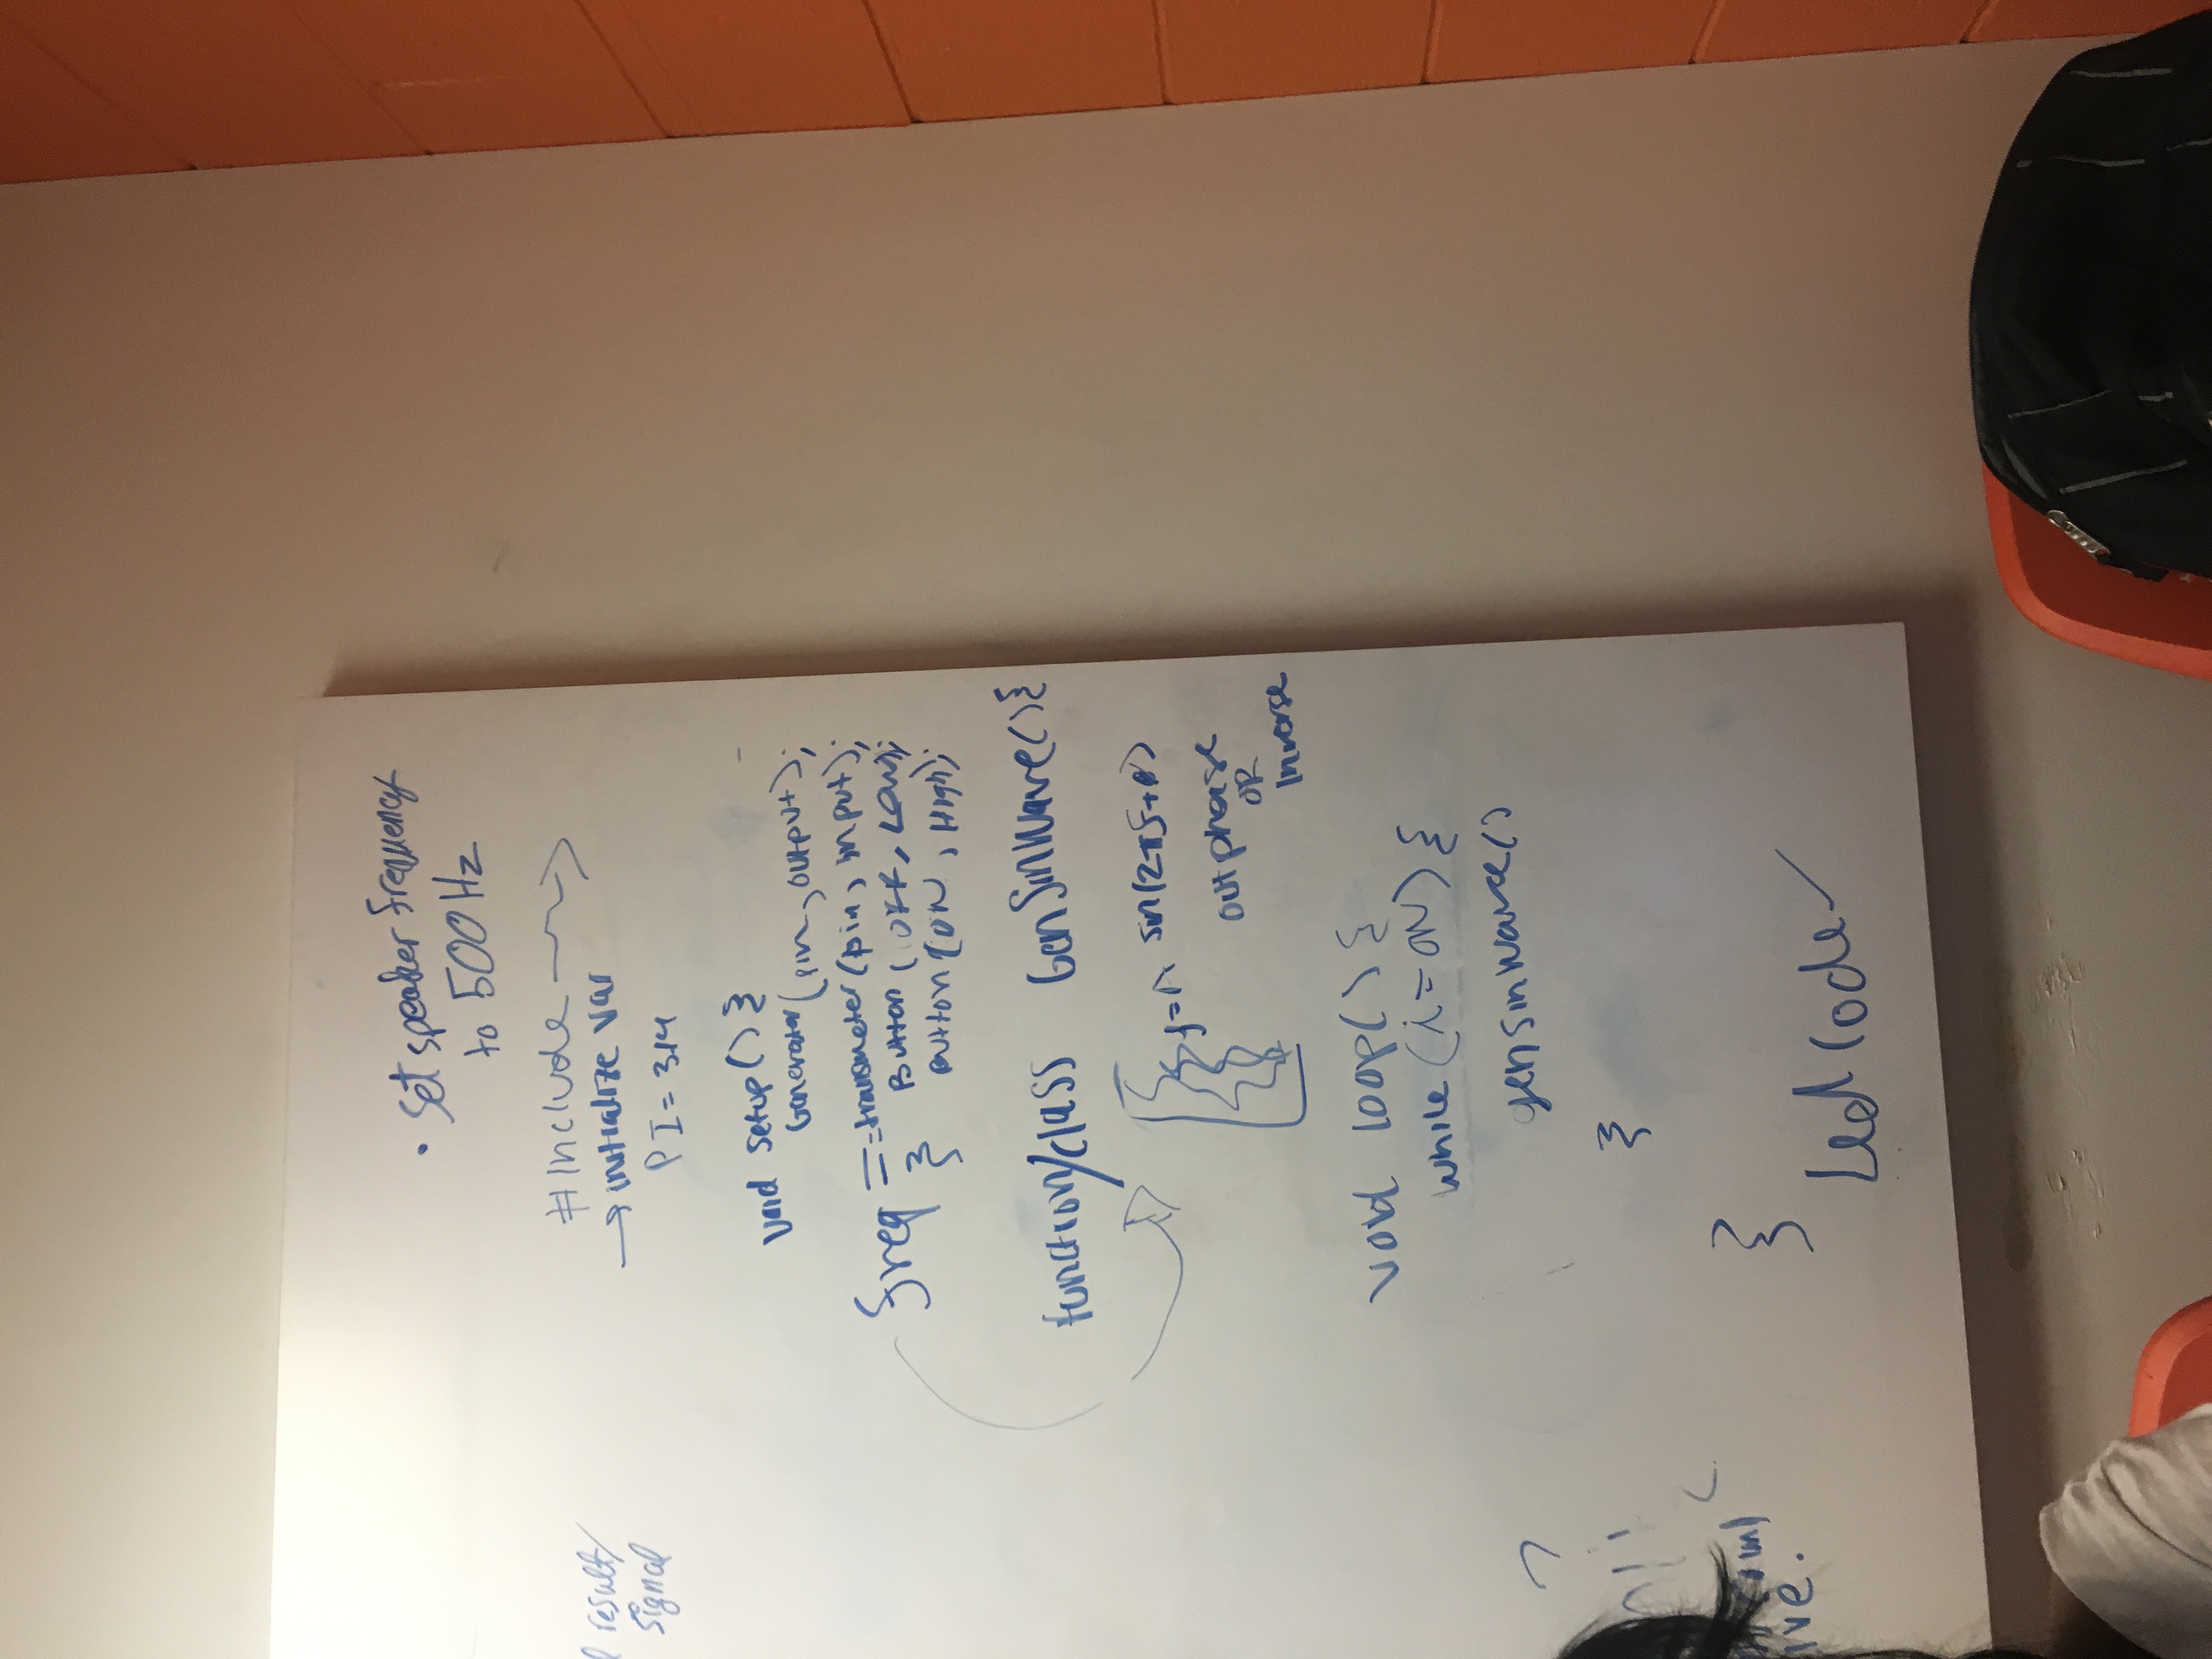 • Set speaker frequency
to 500 Hz
#include
→ initialize var
PI = 3.14
void setup() {
Generator (pin, output);
freq = = transmeter (pin, input);
Button (OFF, Low);
}
Button (ON, High);
function/class GenSinWave() {
sin(2πf+ø)
out phase
OR
Inverse
void loop() {
while (i = ON) {
gensinwave()
}
}
Led Code
result/
signal
?
ive.